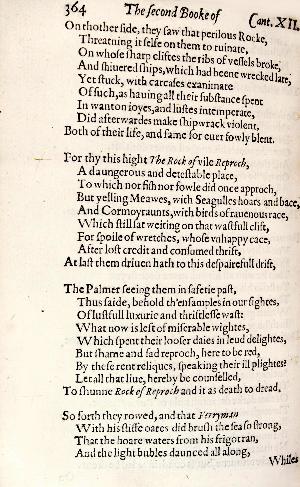 364 The second Booke of Cant. XII.
On thother side, they saw that perilous Rocke,
Threatning it selfe on them to ruinate,
On whose sharp cliftes the ribs of vessels broke,
And shiuered ships, which had beene wrecked late,
Yet stuck, with carcases exanimate
Of such, as hauing all their substance spent
In wanton ioyes, and lustes intemperate,
Did afterwardes make shipwrack violent,
Both of their life, and fame for euer fowly blent.
For thy this hight The Rock of vile Reproch,
A daungerous and detestable place,
To which nor fish nor fowle did once approch,
But yelling Meawes, with Seagulles hoars and bace,
And Cormoyraunts, with birds of rauenous race,
Which still sat weiting on that wastfull clift,
For spoile of wretches, whose vnhappy cace,
After lost credit and consumed thrift,
At last them driuen hath to this despairefull drift,
The Palmer seeing them in safetie past,
Thus saide, behold th'ensamples in our sightes,
Of lustfull luxurie and thriftlesse wast:
What now is left of miserable wightes,
Which spent their looser daies in leud delightes,
But shame and sad reproch, here to be red,
By these rent reliques, speaking their ill plightes?
Let all that liue, hereby be counselled,
To shunne Rock of Reproch and it as death to dread.
So forth they rowed, and that Ferryman
With his stiffe oares did brush the sea so strong,
That the hoare waters from his frigot ran,
And the light bubles daunced all along,
Whiles